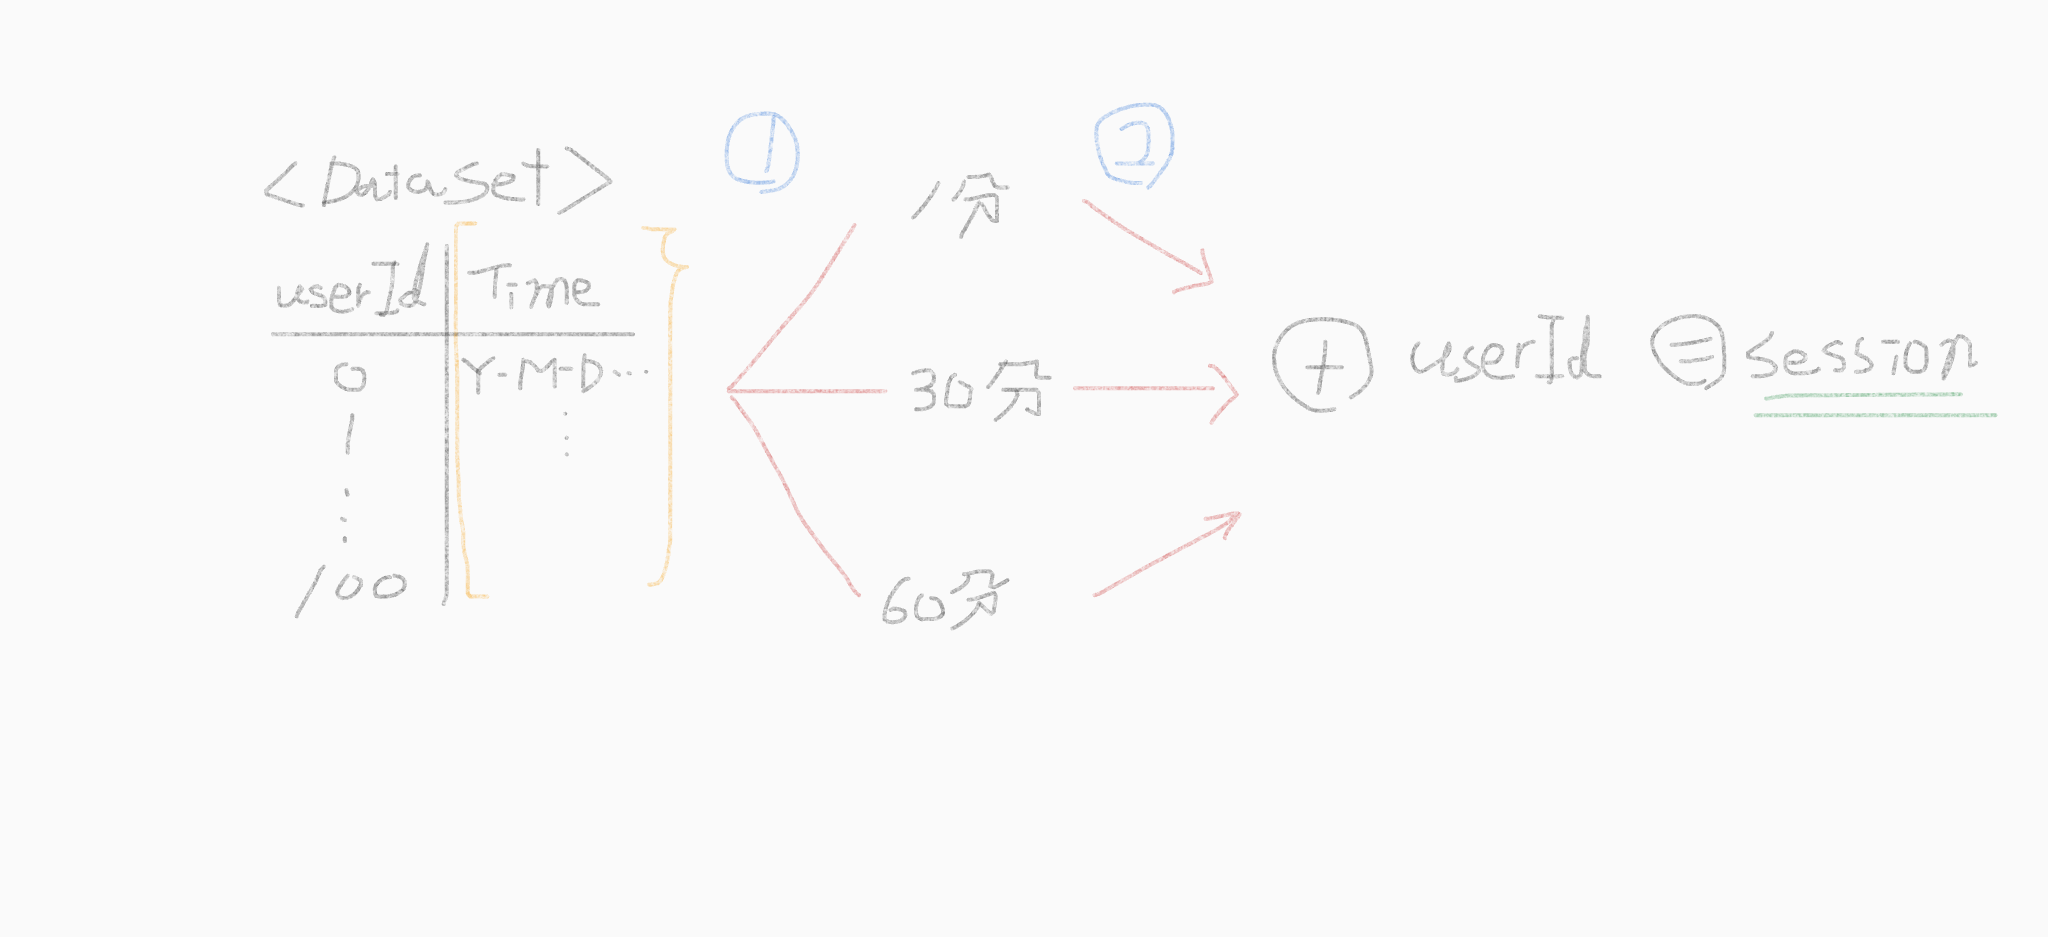 <DataSet>
userId Time
0 Y-M-D...
1
100
①
1分
30分
60分
②
⊕ userId ⊜ session